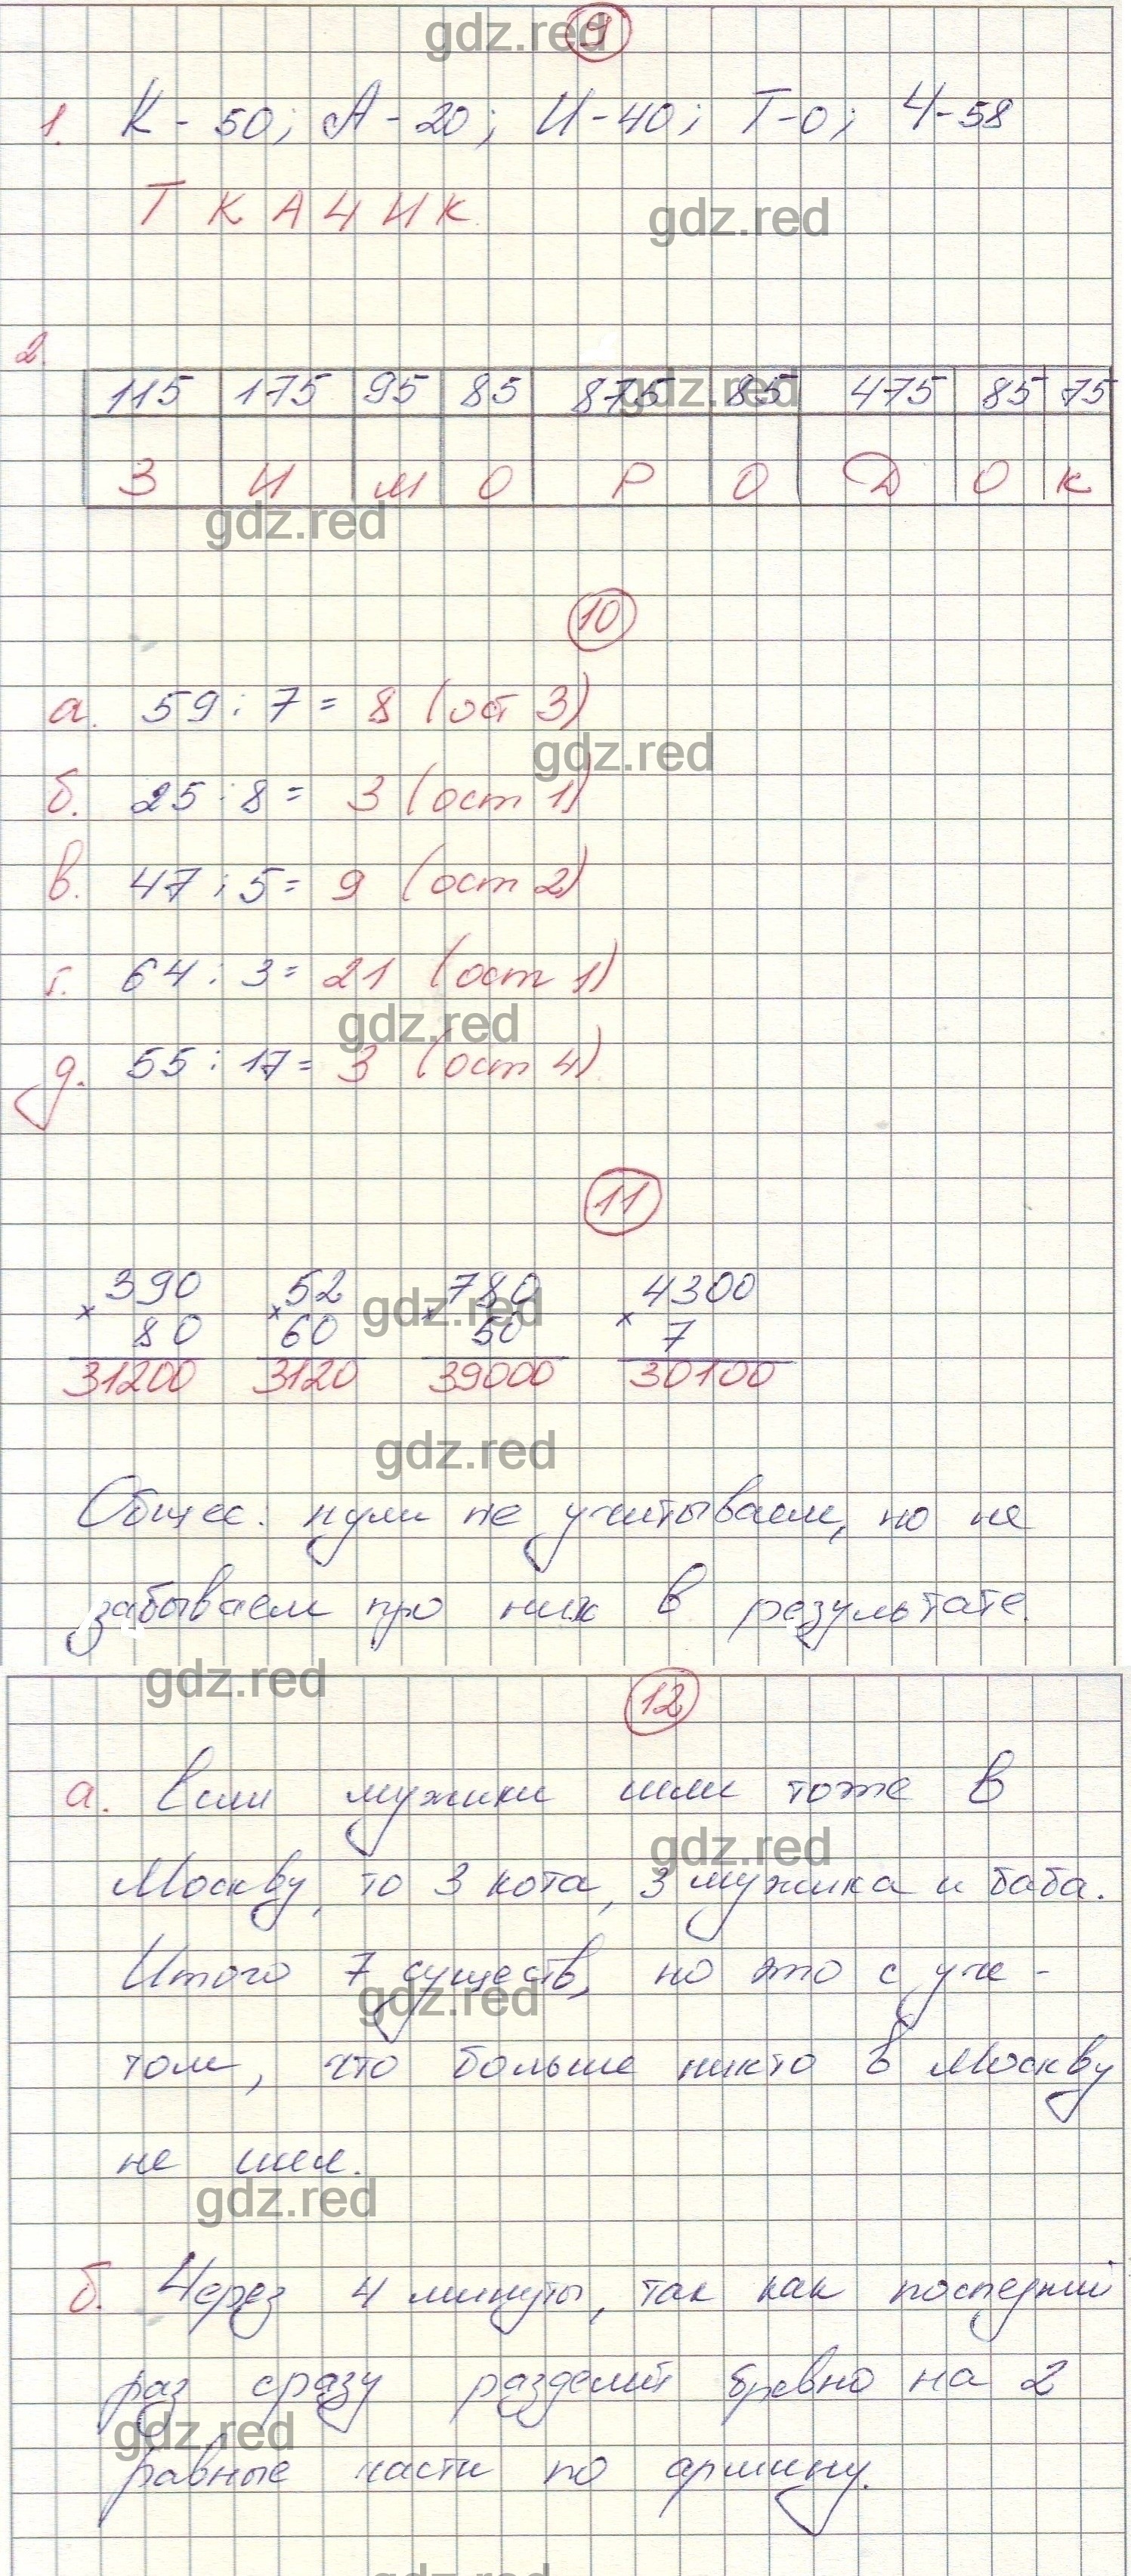 gdz.red
9
1. К - 50; А - 20; И - 40; Т - 0; Ч - 58
Т К А Ч И К.
gdz.red
2.
115 175 95 85 875 85 475 85 75
gdz.red
З И М О Р О Д О К
gdz.red
10
а. 59 : 7 = 8 (ост 3)
gdz.red
б. 25 : 8 = 3 (ост 1)
в. 47 : 5 = 9 (ост 2)
г. 64 : 3 = 21 (ост 1)
gdz.red
д. 55 : 17 = 3 (ост 4)
11
390 52 780 4300
gdz.red
× 80 × 60 × 50 × 7
31200 3120 39000 30100
gdz.red
Общее: нули не учитываем, но не
забываем про них в результате.
gdz.red
12
а. Если мужики шли тоже в
gdz.red
Москву, то 3 кота, 3 мужика и баба.
Итого 7 существ, но это с уче-
gdz.red
том, что больше никто в Москву
не шел.
gdz.red
б. Через 4 минуты, так как последний
раз сразу разделит бревно на 2
gdz.red
равные части по аршину.
gdz.red